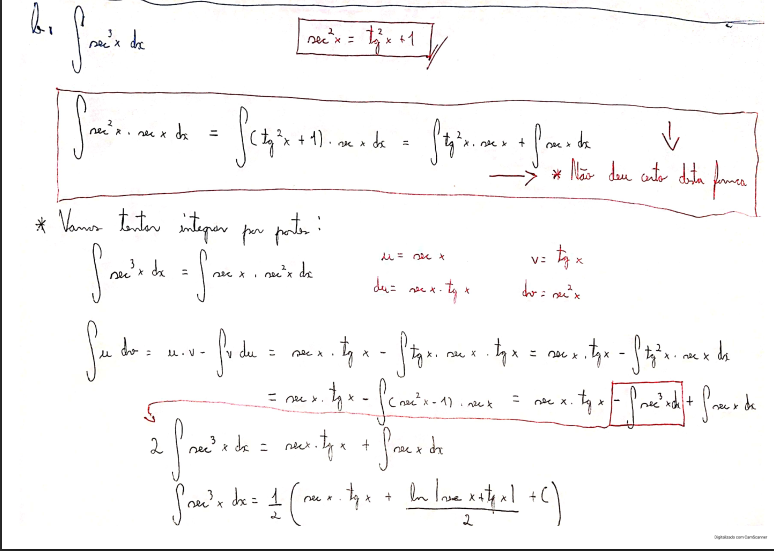 b. ∫ sec³x dx    sec²x = tg²x + 1
∫ sec²x · sec x dx = ∫ (tg²x + 1) · sec x dx = ∫ tg²x · sec x + ∫ sec x dx
* Não deu certo desta forma
* Vamos tentar integrar por partes:
∫ sec³x dx = ∫ sec x · sec²x dx    u = sec x    v = tg x
du = sec x · tg x    dv = sec²x
∫ u dv = u · v - ∫ v du = sec x · tg x - ∫ tg x · sec x · tg x = sec x · tg x - ∫ tg²x · sec x dx
= sec x · tg x - ∫ (sec²x - 1) · sec x = sec x · tg x - ∫ sec³x dx + ∫ sec x dx
2 ∫ sec³x dx = sec x · tg x + ∫ sec x dx
∫ sec³x dx = 1/2 (sec x · tg x + ln |sec x + tg x| / 2 + C)
Digitalizado com CamScanner